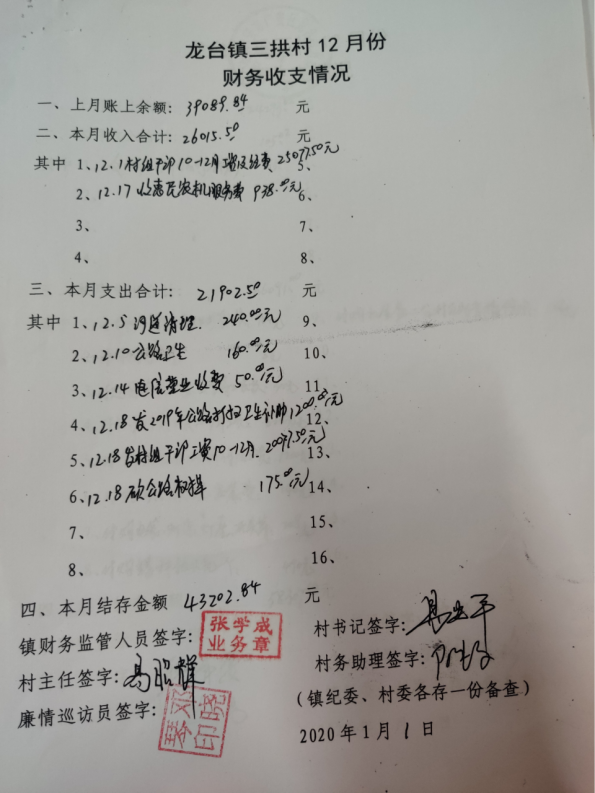 龙台镇三拱村12月份
财务收支情况
一、上月账上余额：39089.84 元
二、本月收入合计：26015.50 元
其中 1、12.1村组干部10-12月工资及经费 25077.50元 5、
2、12.17 收惠民农机服务费 938.00元 6、
3、 7、
4、 8、
三、本月支出合计：21902.50 元
其中 1、12.5 河道清理. 240.00元 9、
2、12.10 公路卫生 160.00元 10、
3、12.14 电信营业收费 50.00元 11、
4、12.18 发2019年公路 卫生补助1200.00元 12、
5、12.18发村组干部工资10-12月. 20077.50元 13、
6、12.18 砍公路 175.00元 14、
7、 15、
8、 16、
四、本月结存金额 43202.84 元
镇财务监管人员签字：张学成 业务章
村书记签字：
村主任签字：
村务助理签字：
廉情巡访员签字：邓晓琴印
（镇纪委、村委各存一份备查）
2020年1月1日